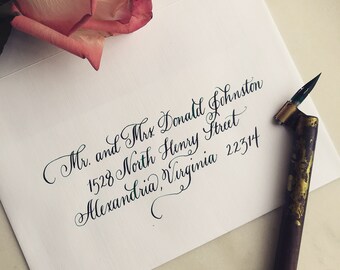 Mr. and Mrs Donald Johnston
1528 North Henry Street
Alexandria, Virginia 22314